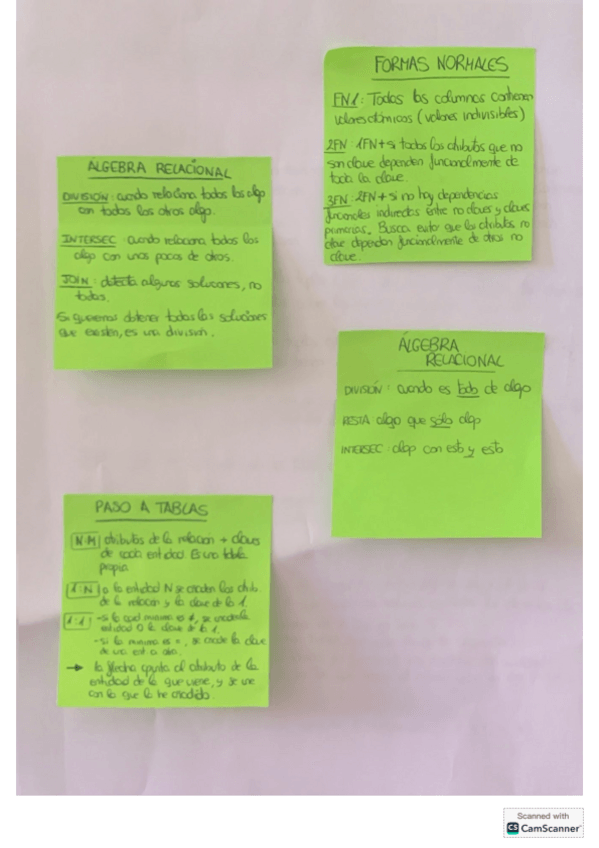 FORMAS NORMALES
FN1: Todas las columnas contienen
valores atómicos (valores indivisibles)
2FN: 1FN + si todos los atributos que no
son clave dependen funcionalmente de
toda la clave.
3FN: 2FN + si no hay dependencias
funcionales indirectas entre no claves y claves
primarias. Busca evitar que los atributos no
clave dependan funcionalmente de otros no
clave.
ALGEBRA RELACIONAL
DIVISIÓN: cuando relaciona todos los algo
con todos los otros algo.
INTERSEC: cuando relaciona todos los
algo con unos pocos de otros.
JOIN: detecta algunas soluciones, no
todas.
Si queremos obtener todas las soluciones
que existen, es una división.
ÁLGEBRA
RELACIONAL
DIVISIÓN: cuando es todo de algo
RESTA algo que sólo algo
INTERSEC: algo con esto y esto
PASO A TABLAS
N:M atributos de la relación + claves
de cada entidad. Es una tabla
propia.
1:N a la entidad N se añaden los atrib.
de la relación y la clave de la 1.
1:1 -si la card minima es
entidad 0 la clave de la 1.
-si la minima es =, se añade la clave
de una est a otra.
→ la flecha apunta al atributo de la
entidad de la que viene, y se une
con lo que le he añadido.
Scanned with
CS CamScanner